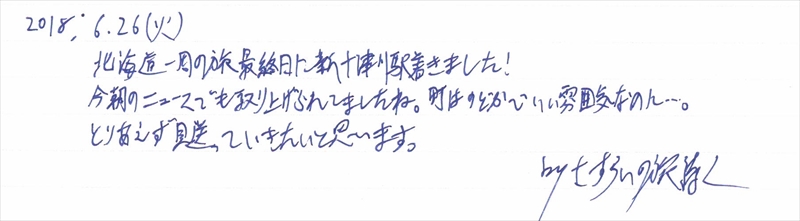 2018, 6.26(火)
北海道一周の旅最終日に新十津川駅着きました!
今朝のニュースでも取り上げられてましたね。町はのどかでいい雰囲気なのに…。
とりあえず見送っていきたいと思います。
byさすらいの旅